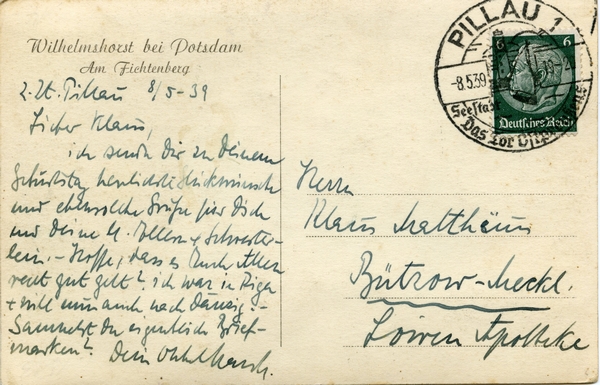 Wilhelmshorst bei Potsdam
Am Fichtenberg
z. Zt. Pillau 8/5-39
Lieber Klaus,
ich sende Dir zu Deinem
Geburtstag herzlichste Glückwünsche
und ebensolche Grüße für Dich
und Deine l. Eltern & Schwester-
lein. - Hoffe, dass es Euch Allen
recht gut geht? ich war in Riga
+ will nun auch nach Danzig. -
Sammelst Du eigentlich Brief-
marken? Dein Onkel
PILLAU 1
-8.5.39
Seestadt
Das Tor Ostpreußens
6 6
Deutsches Reich
Herrn
Klaus Matthäus
Bützow-Meckl.
Löwen Apotheke